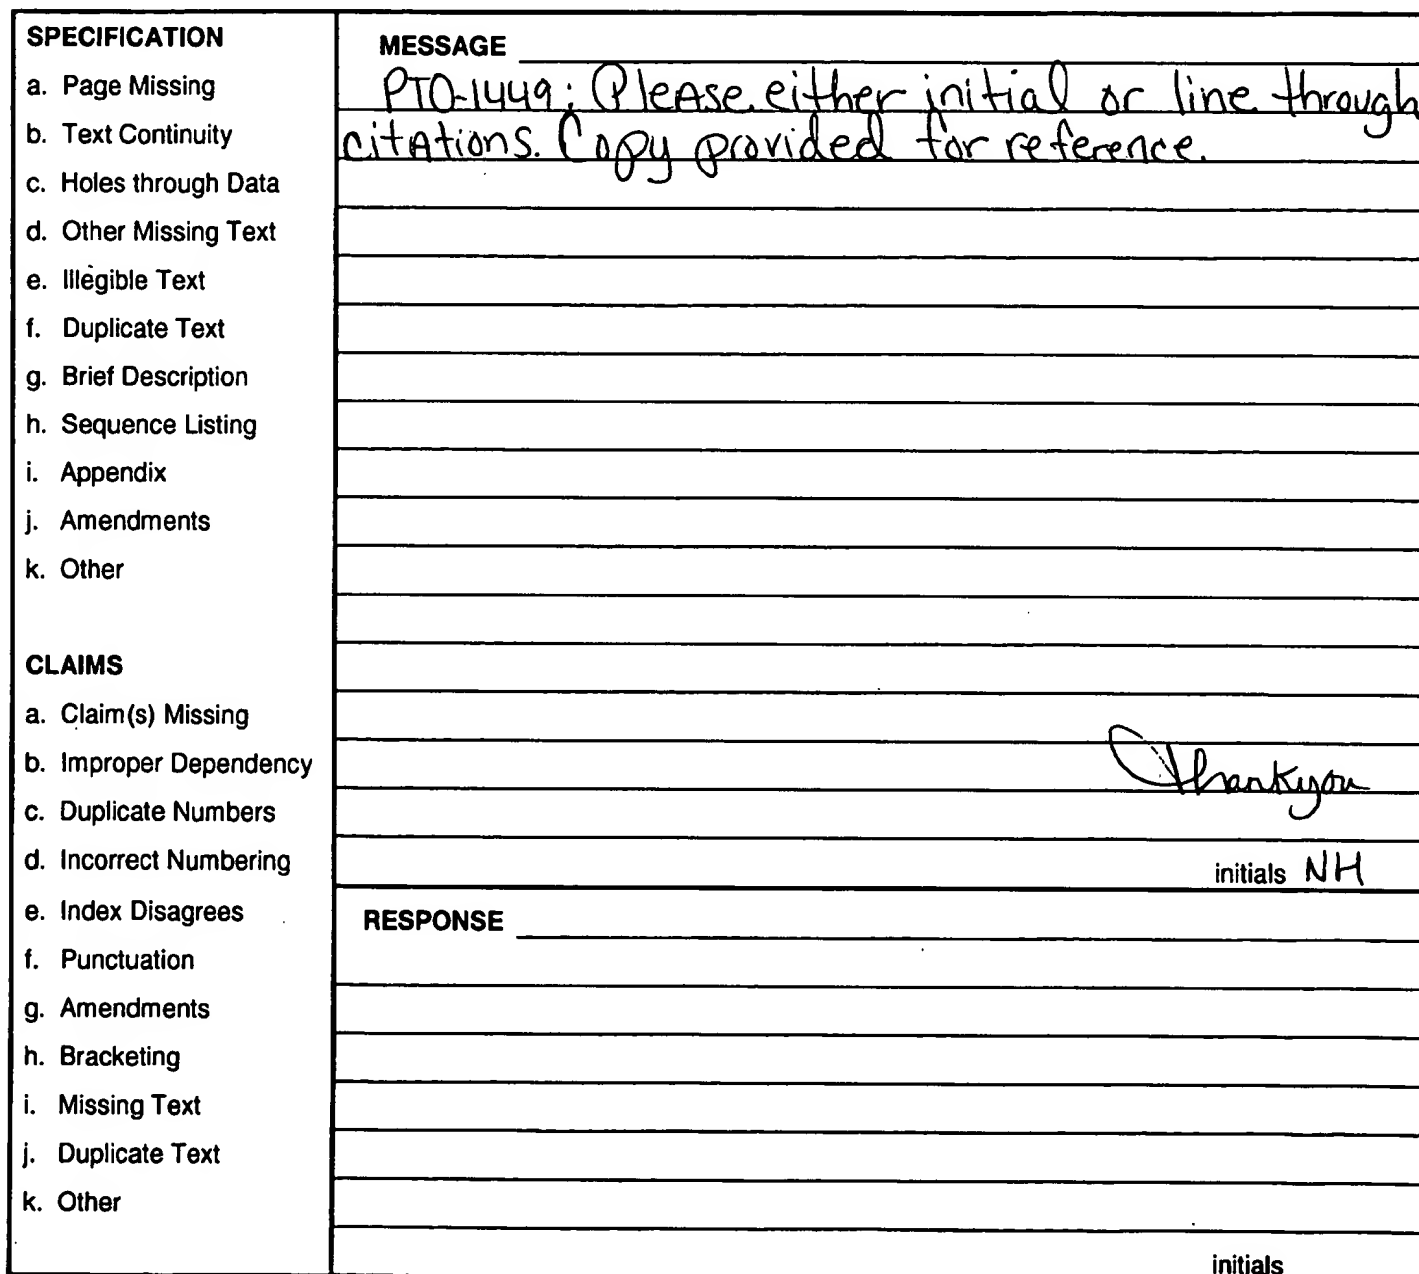 SPECIFICATION
a. Page Missing
b. Text Continuity
c. Holes through Data
d. Other Missing Text
e. Illegible Text
f. Duplicate Text
g. Brief Description
h. Sequence Listing
i. Appendix
j. Amendments
k. Other
CLAIMS
a. Claim(s) Missing
b. Improper Dependency
c. Duplicate Numbers
d. Incorrect Numbering
e. Index Disagrees
f. Punctuation
g. Amendments
h. Bracketing
i. Missing Text
j. Duplicate Text
k. Other
MESSAGE
PTO-1449: Please either initial or line through
citations. Copy provided for reference.
Thankyou
initials NH
RESPONSE
initials